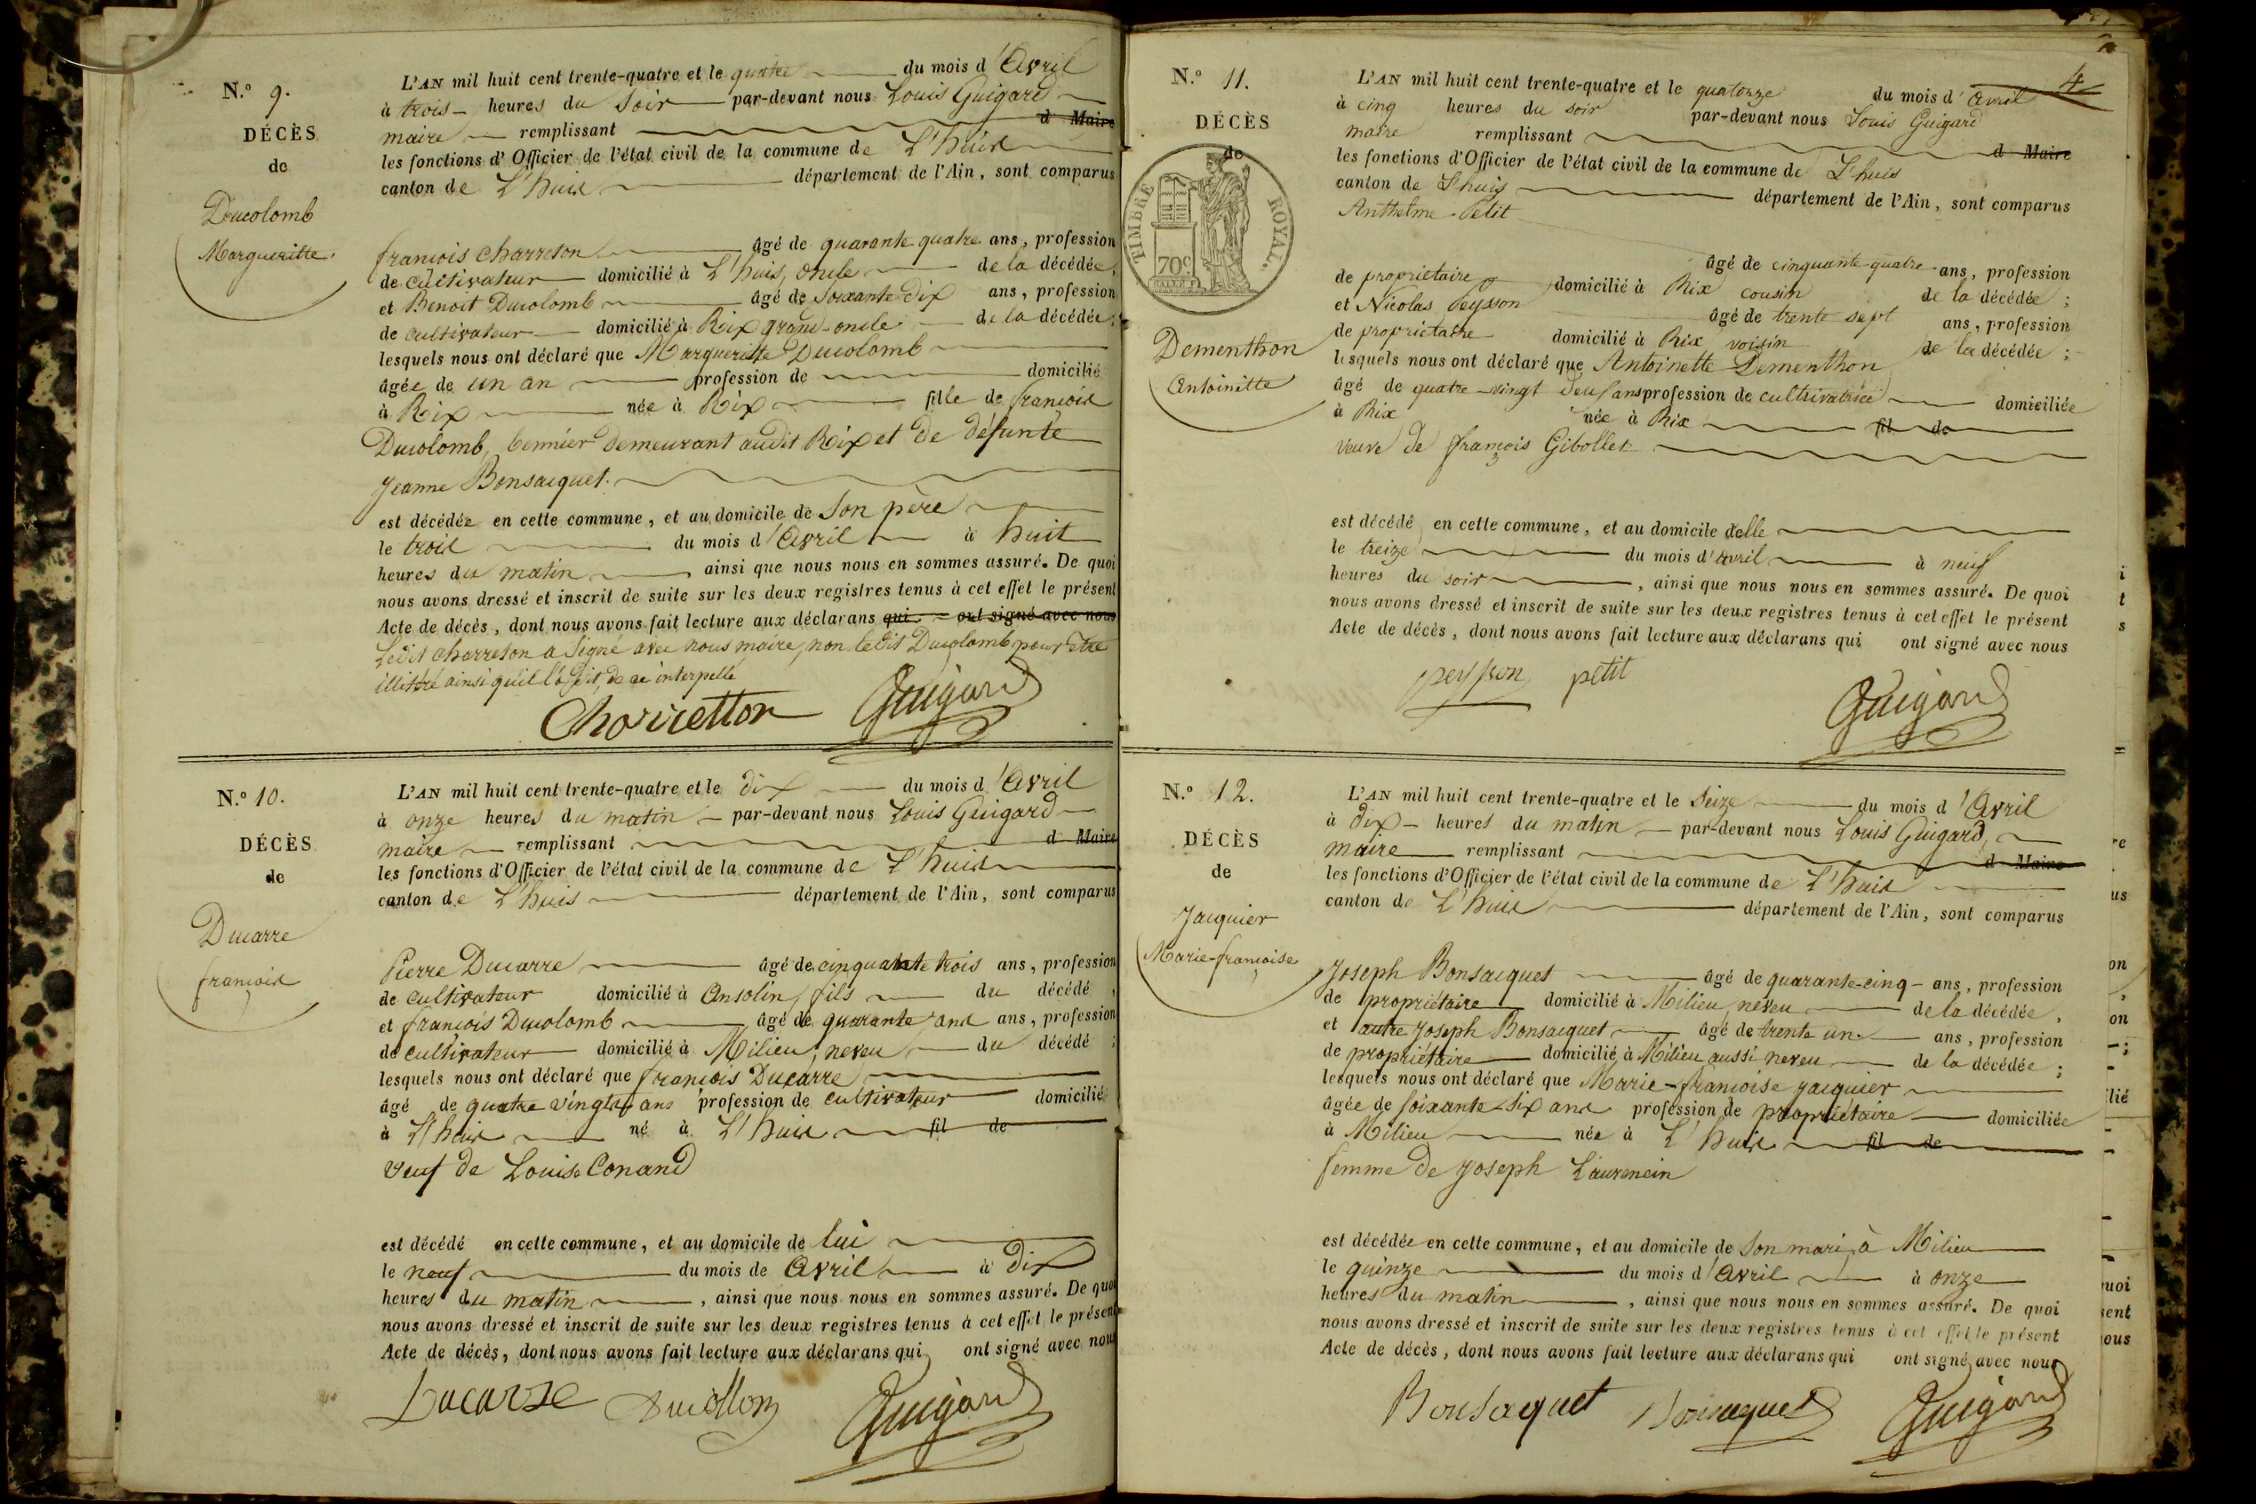 N.º 9.
DÉCÈS
de
Ducolomb
Margueritte.
L'AN mil huit cent trente-quatre et le quatre du mois d'Avril
à trois heures du soir par-devant nous Louis Guigard
maire remplissant d Maire
les fonctions d'Officier de l'état civil de la commune de L'huis
canton de L'huis département de l'Ain, sont comparus
françois Charreton âgé de quarante quatre ans, profession
de cultivateur domicilié à L'huis, oncle de la décédée,
et Benoit Ducolomb âgé de soixante dix ans, profession
de cultivateur domicilié à Rix grand-oncle de la décédée;
lesquels nous ont déclaré que Margueritte Ducolomb
âgée de un an profession de domicilié
à Rix née à Rix fille de françois
Ducolomb, fermier demeurant audit Rix et de défunte
Jeanne Bonsacquet.
est décédée en cette commune, et au domicile de son père
le trois du mois d'Avril à huit
heures du matin ainsi que nous nous en sommes assuré. De quoi
nous avons dressé et inscrit de suite sur les deux registres tenus à cet effet le présent
Acte de décès, dont nous avons fait lecture aux déclarans qui ont signé avec nous
Ledit Charreton a signé avec nous maire, non ledit Ducolomb pour être
illitéré ainsi qu'il l'a dit, de ce interpellé
Charretton Guigard
N.º 10.
DÉCÈS
de
Ducarre
françois
L'AN mil huit cent trente-quatre et le dix du mois d'Avril
à onze heures du matin par-devant nous Louis Guigard
maire remplissant d Maire
les fonctions d'Officier de l'état civil de la commune de L'huis
canton de L'huis département de l'Ain, sont comparus
Pierre Ducarre âgé de cinquante trois ans, profession
de cultivateur domicilié à Ansolin, fils du décédé,
et françois Ducolomb âgé de quarante ans ans, profession
de cultivateur domicilié à Milieu, neveu du décédé;
lesquels nous ont déclaré que françois Ducarre
âgé de quatre vingts ans profession de cultivateur domicilié
à L'huis né à L'huis fil de
veuf de Louise Conand
est décédé en cette commune, et au domicile de lui
le neuf du mois de Avril à dix
heures du matin, ainsi que nous nous en sommes assuré. De quoi
nous avons dressé et inscrit de suite sur les deux registres tenus à cet effet le présent
Acte de décès, dont nous avons fait lecture aux déclarans qui ont signé avec nous
Ducarre Ducollon Guigard
4
N.º 11.
DÉCÈS
de
TIMBRE ROYAL.
70c
Dementhon
Antoinette
L'AN mil huit cent trente-quatre et le quatorze du mois d'avril
à cinq heures du soir par-devant nous Louis Guigard
maire remplissant d Maire
les fonctions d'Officier de l'état civil de la commune de L'huis
canton de L'huis département de l'Ain, sont comparus
Anthelme Petit
âgé de cinquante-quatre ans, profession
de propriétaire domicilié à Rix cousin de la décédée;
et Nicolas Peysson âgé de trente sept ans, profession
de propriétaire domicilié à Rix voisin de la décédée;
lesquels nous ont déclaré que Antoinette Dementhon
âgé de quatre-vingt deux ans profession de cultivatrice domiciliée
à Rix née à Rix fil de
veuve de françois Gibollet
est décédé en cette commune, et au domicile delle
le treize du mois d'avril à neuf
heures du soir, ainsi que nous nous en sommes assuré. De quoi
nous avons dressé et inscrit de suite sur les deux registres tenus à cet effet le présent
Acte de décès, dont nous avons fait lecture aux déclarans qui ont signé avec nous
peysson petit
Guigard
N.º 12.
DÉCÈS
de
Jacquier
Marie-françoise
L'AN mil huit cent trente-quatre et le seize du mois d'Avril
à dix heures du matin par-devant nous Louis Guigard,
maire remplissant d Maire
les fonctions d'Officier de l'état civil de la commune de L'huis
canton de L'huis département de l'Ain, sont comparus
Joseph Bonsacquet âgé de quarante-cinq ans, profession
de propriétaire domicilié à Milieu, neveu de la décédée,
et autre Joseph Bonsacquet âgé de trente un ans, profession
de propriétaire domicilié à Milieu aussi neveu de la décédée;
lesquels nous ont déclaré que Marie-françoise Jacquier
âgée de soixante-six ans profession de propriétaire domiciliée
à Milieu née à L'huis fil de
femme de Joseph
est décédée en cette commune, et au domicile de son mari, à Milieu
le quinze du mois d'Avril à onze
heures du matin, ainsi que nous nous en sommes assuré. De quoi
nous avons dressé et inscrit de suite sur les deux registres tenus à cet effet le présent
Acte de décès, dont nous avons fait lecture aux déclarans qui ont signé avec nous
Bonsaquet Bonsacquet Guigard